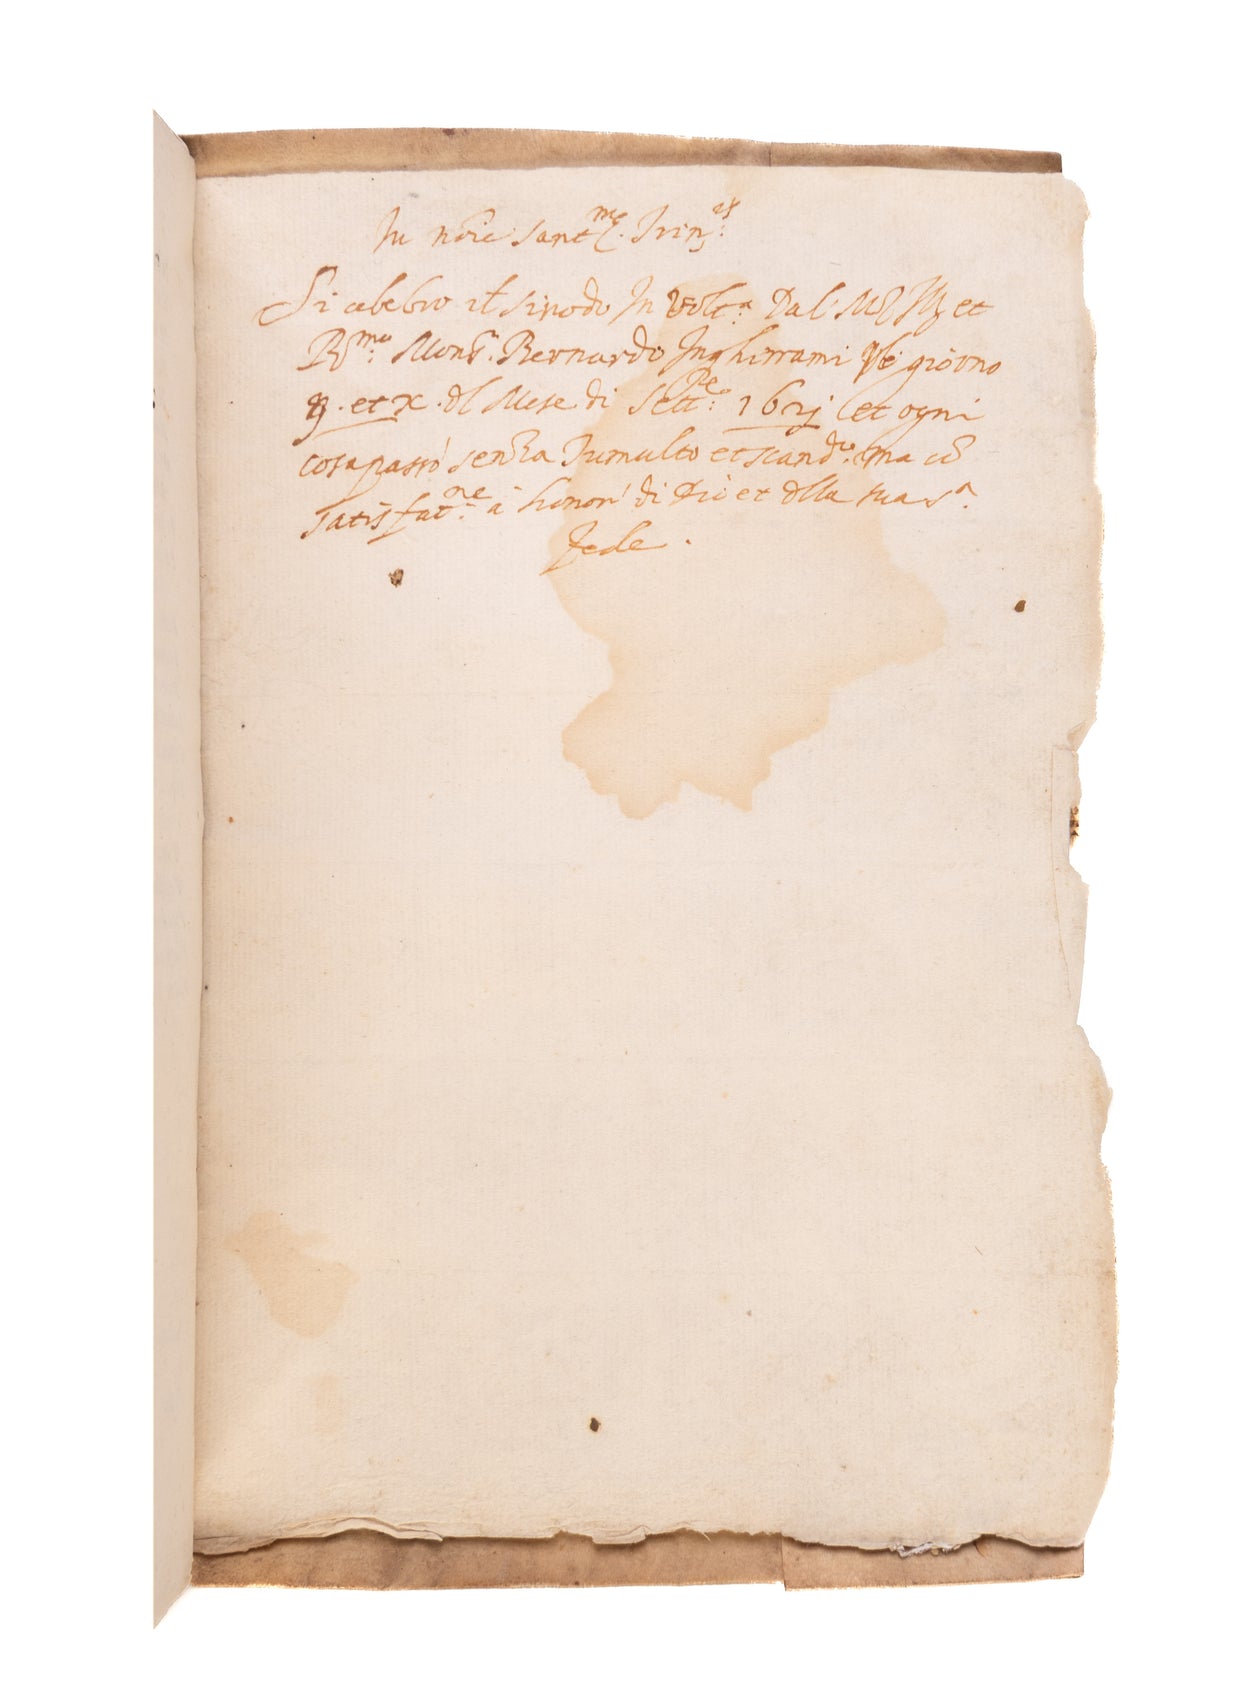 In no͠ie Sant.me Trin.es
Si celebrò il sinodo In Volt.a Dal M. Ill. et
R.mo Mons.r Bernardo Inghirrami giorno
9. et X. dl Mese di Sett.re 1621 et ogni
cosa passò senza Tumulto et scand.lo ma co͠
satisfat.ne à honor di Dio et dlla sua S.a
fede.